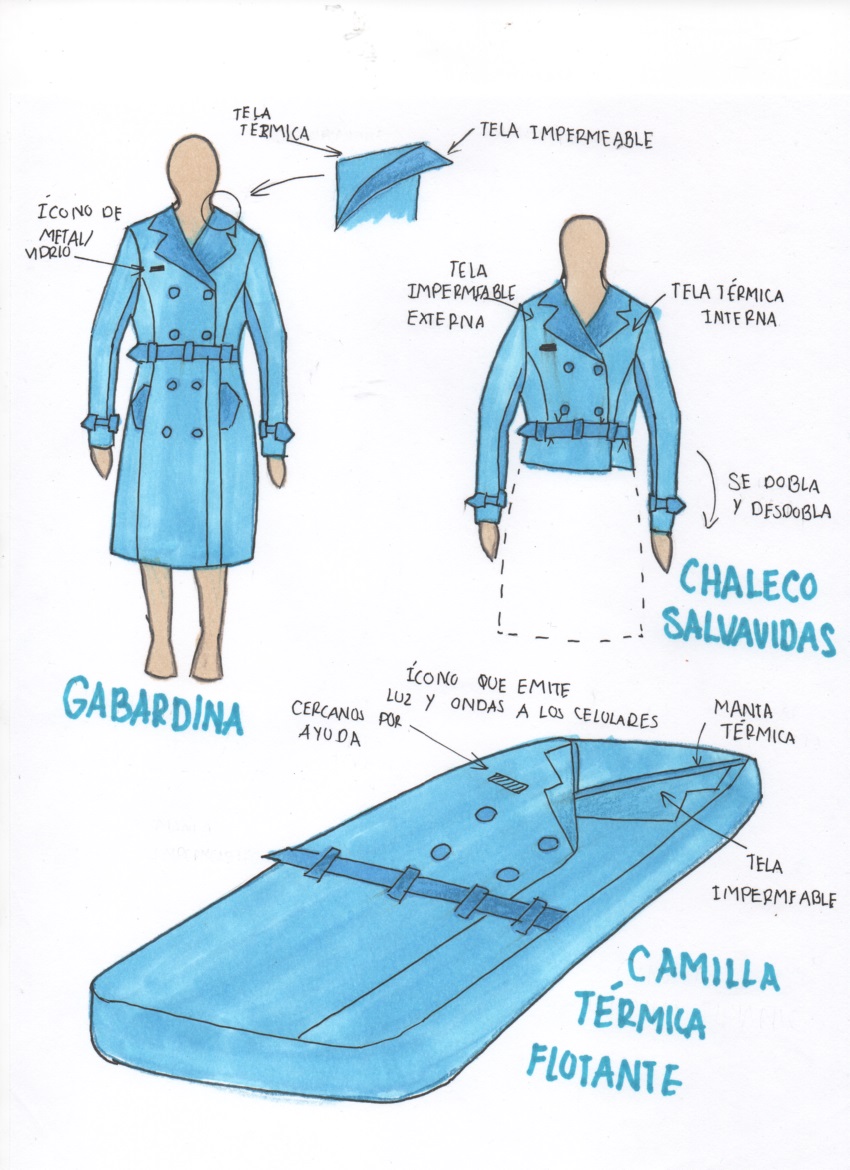 TELA
TÉRMICA
TELA IMPERMEABLE
ÍCONO DE
METAL/
VIDRIO
TELA
IMPERMEABLE
EXTERNA
TELA TÉRMICA
INTERNA
SE DOBLA
Y DESDOBLA
CHALECO
SALVAVIDAS
GABARDINA
ÍCONO QUE EMITE
LUZ Y ONDAS A LOS CELULARES
CERCANOS POR
AYUDA
MANTA
TÉRMICA
TELA
IMPERMEABLE
CAMILLA
TÉRMICA
FLOTANTE